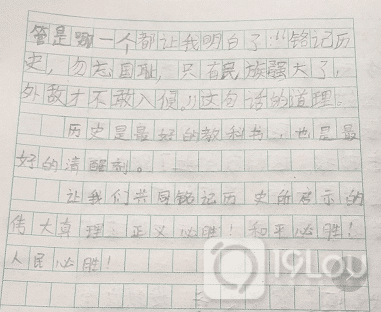 管是哪一个都让我明白了：“铭记历
史，勿忘国耻，只有民族强大了，
外敌才不敢入侵，”这句话的道理。
历史是最好的教科书，也是最
好的清醒剂。
让我们共同铭记历史所启示的
伟大真理：正义必胜！和平必胜！
人民必胜！
19LOU